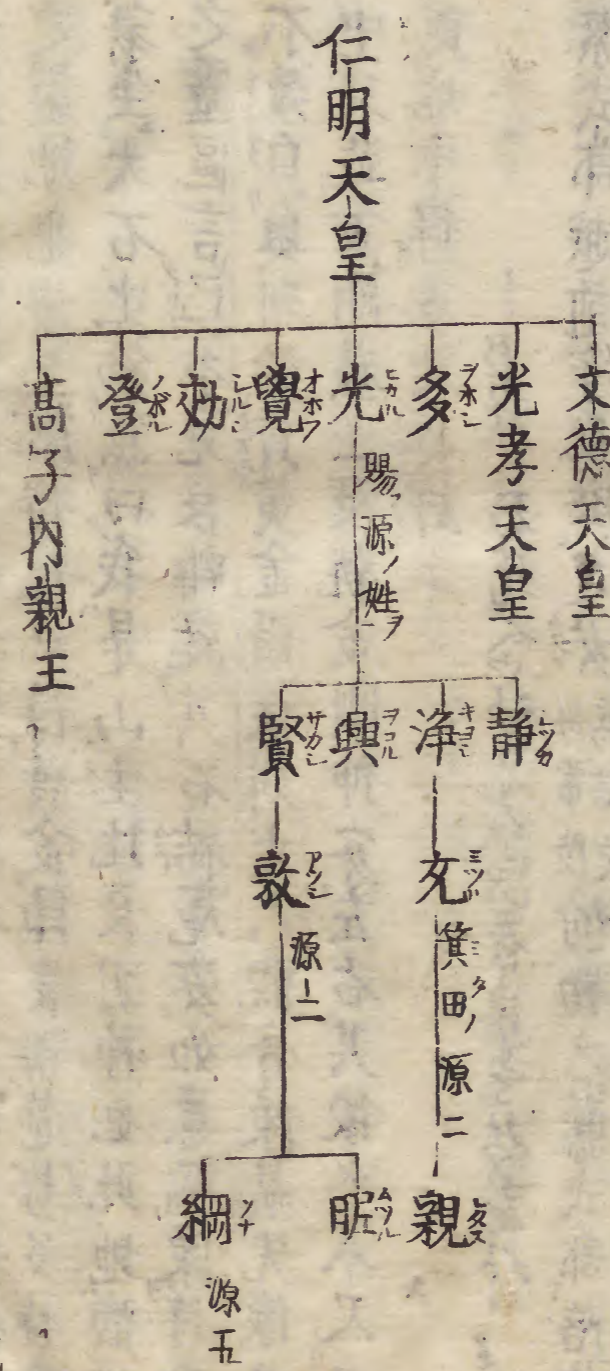 仁明天皇
文德天皇
光孝天皇
多 ヲホシ
光 ヒカル 賜フ源ノ姓ヲ
覺 オホフ
効 シルシ
登 ノボル
高子内親王
静 シツカ
浄 キヨシ
興 ヲコル
賢 サカシ
充 ミツル 箕田ノ源二 ミタ
敦 アツシ 源二
親 シタス
眤 ムツル
綱 ツナ 源五